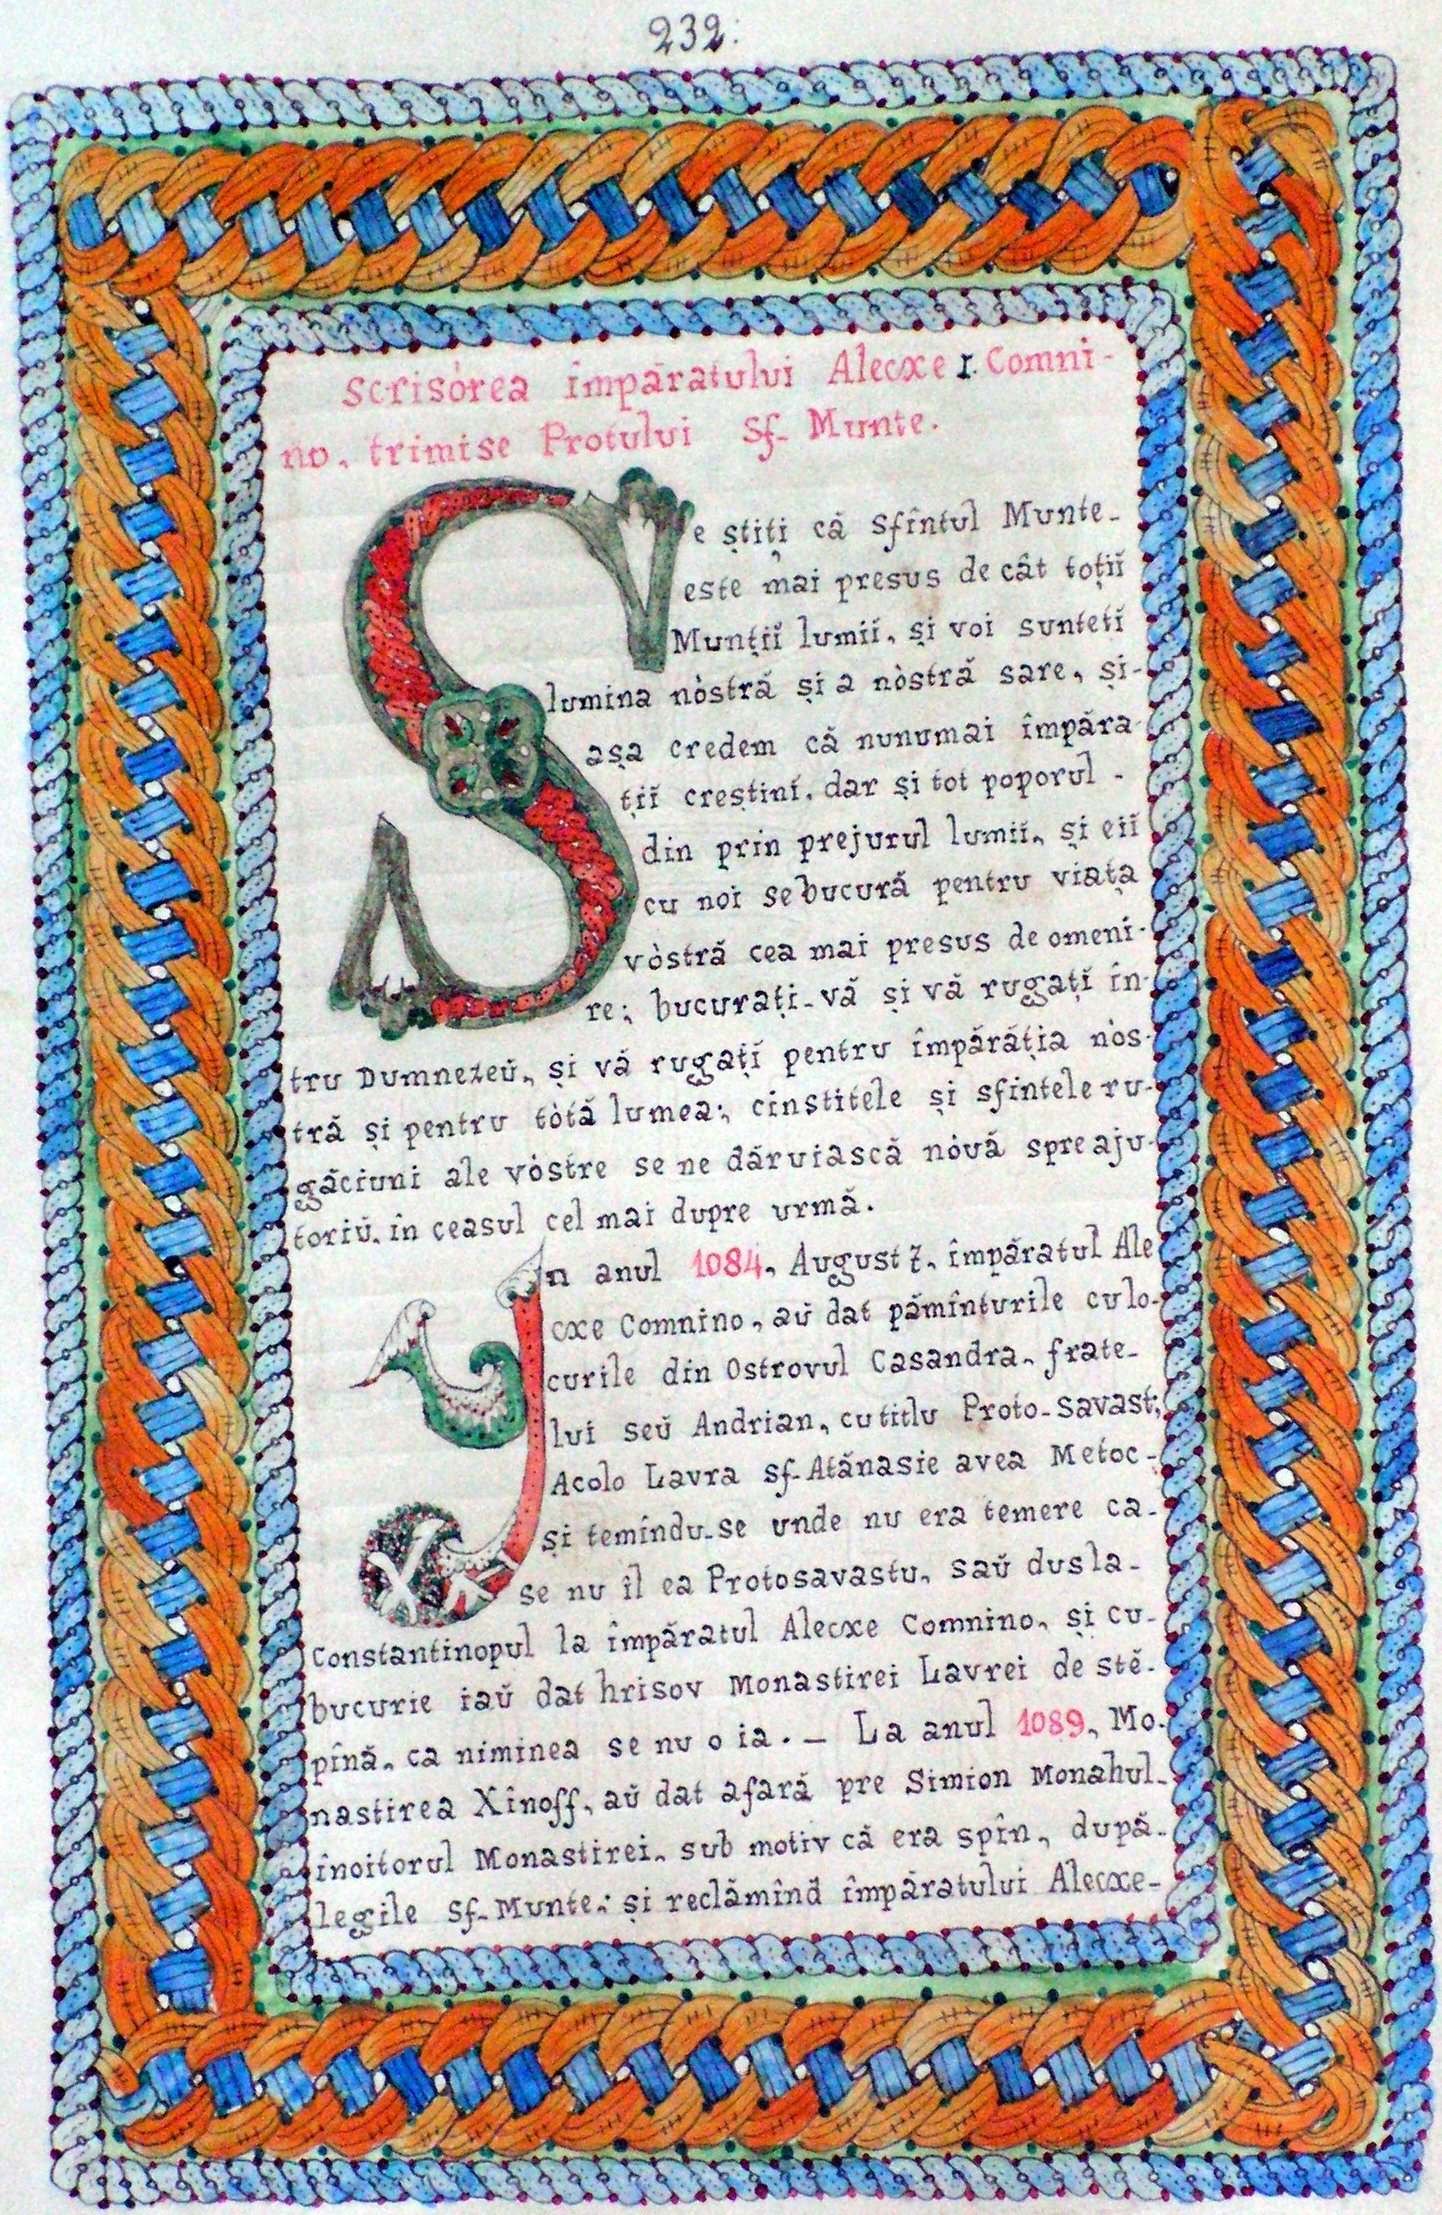 232.
Scrisórea împăratului Alecxe I. Comni-
no, trimise Protului Sf- Munte.
Se știți că sfîntul Munte-
este mai presus de cât toțiĭ
Munțiĭ lumiĭ, și voi sunteti
lumina nòstră și a nòstră sare, și-
așa credem că nunumai împăra-
țiĭ creștinĭ, dar și tot poporul -
din prin prejurul lumiĭ, și eiĭ
cu noi se bucură pentru viața
vòstră cea mai presus de omeni-
re; bucurați-vă și vă rugați în-
tru Dumnezeŭ, și vă rugați pentru împărăția nòs-
tră și pentru tòtă lumea; cinstitele și sfintele ru-
găciuni ale vòstre se ne dăruiască nòuă spre aju-
toriŭ, în ceasul cel mai dupre urmă.
In anul 1084, August 7, împăratul Ale
cxe Comnino, aŭ dat pămînturile cu lo-
curile din Ostrovul Casandra, frate-
lui seŭ Andrian, cu titlu Proto-savast;
Acolo Lavra sf-Atănasie avea Metoc-
și temîndu-se unde nu era temere ca-
se nu îl ea Protosavastu, saŭ dus la-
Constantinopul la împăratul Alecxe Comnino, și cu-
bucurie iaŭ dat hrisov Monastirei Lavrei de stĕ-
pînă, ca niminea se nu o ia. — La anul 1089, Mo-
nastirea Xînoff, aŭ dat afară pre Simion Monahul-
înoitorul Monastirei, sub motiv că era spîn, după-
legile Sf-Munte; și reclămînd împăratului Alecxe-